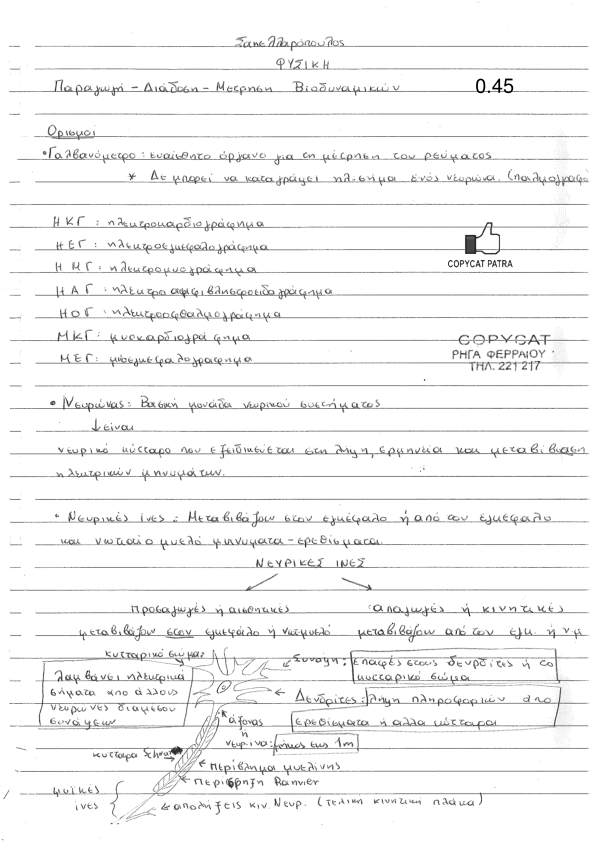 Σακελλαρόπουλος
ΦΥΣΙΚΗ
Παραγωγή - Διάδοση - Μέτρηση Βιοδυναμικών
0.45
Ορισμοί
• Γαλβανόμετρο: ευαίσθητο όργανο για τη μέτρηση του ρεύματος
* Δε μπορεί να καταγράψει ηλ. σήμα ενός νευρώνα. (παλμογράφο
ΗΚΓ: ηλεκτροκαρδιογράφημα
ΗΕΓ: ηλεκτροεγκεφαλογράφημα
ΗΜΓ: ηλεκτρομυογράφημα
ΗΑΓ: ηλεκτροαμφιβληστροειδογράφημα
ΗΟΓ: ηλεκτροοφθαλμογράφημα
ΜΚΓ: μυοκαρδιογράφημα
ΜΕΓ:
COPYCAT PATRA
COPYCAT
ΡΗΓΑ ΦΕΡΡΑΙΟΥ
ΤΗΛ. 221 217
• Νευρώνας: Βασική μονάδα νευρικού συστήματος
↓ είναι
νευρικό κύτταρο που εξειδικεύεται στη λήψη, ερμηνεία και μεταβίβαση
ηλεκτρικών μηνυμάτων.
• Νευρικές ίνες: Μεταβιβάζουν στον εγκέφαλο ή από τον εγκέφαλο
και νωτιαίο μυελό μηνύματα - ερεθίσματα.
ΝΕΥΡΙΚΕΣ ΙΝΕΣ
Προσαγωγές ή αισθητικές
απαγωγές ή κινητικές
μεταβιβάζουν στον εγκεφάλο ή νωτ. μυελό
μεταβιβάζουν από τον εγκ. ή ν.μ
κυτταρικό σώμα:
Λαμβάνει ηλεκτρικά
σήματα από άλλους
νευρώνες διαμέσου
συνάψεων
Σύναψη: επαφές στους δενδρίτες ή το
κυτταρικό σώμα
Δενδρίτες: λήψη πληροφοριών από
ερεθίσματα ή άλλα κύτταρα
άξονας
ή
νευρ. ινα: μήκος εως 1m
κυτταρα Schwann
περίβλημα μυελίνης
περίσφηξη Ranvier
μυϊκές
ίνες
απολήξεις κιν. Νευρ. (τελική κινητική πλάκα)